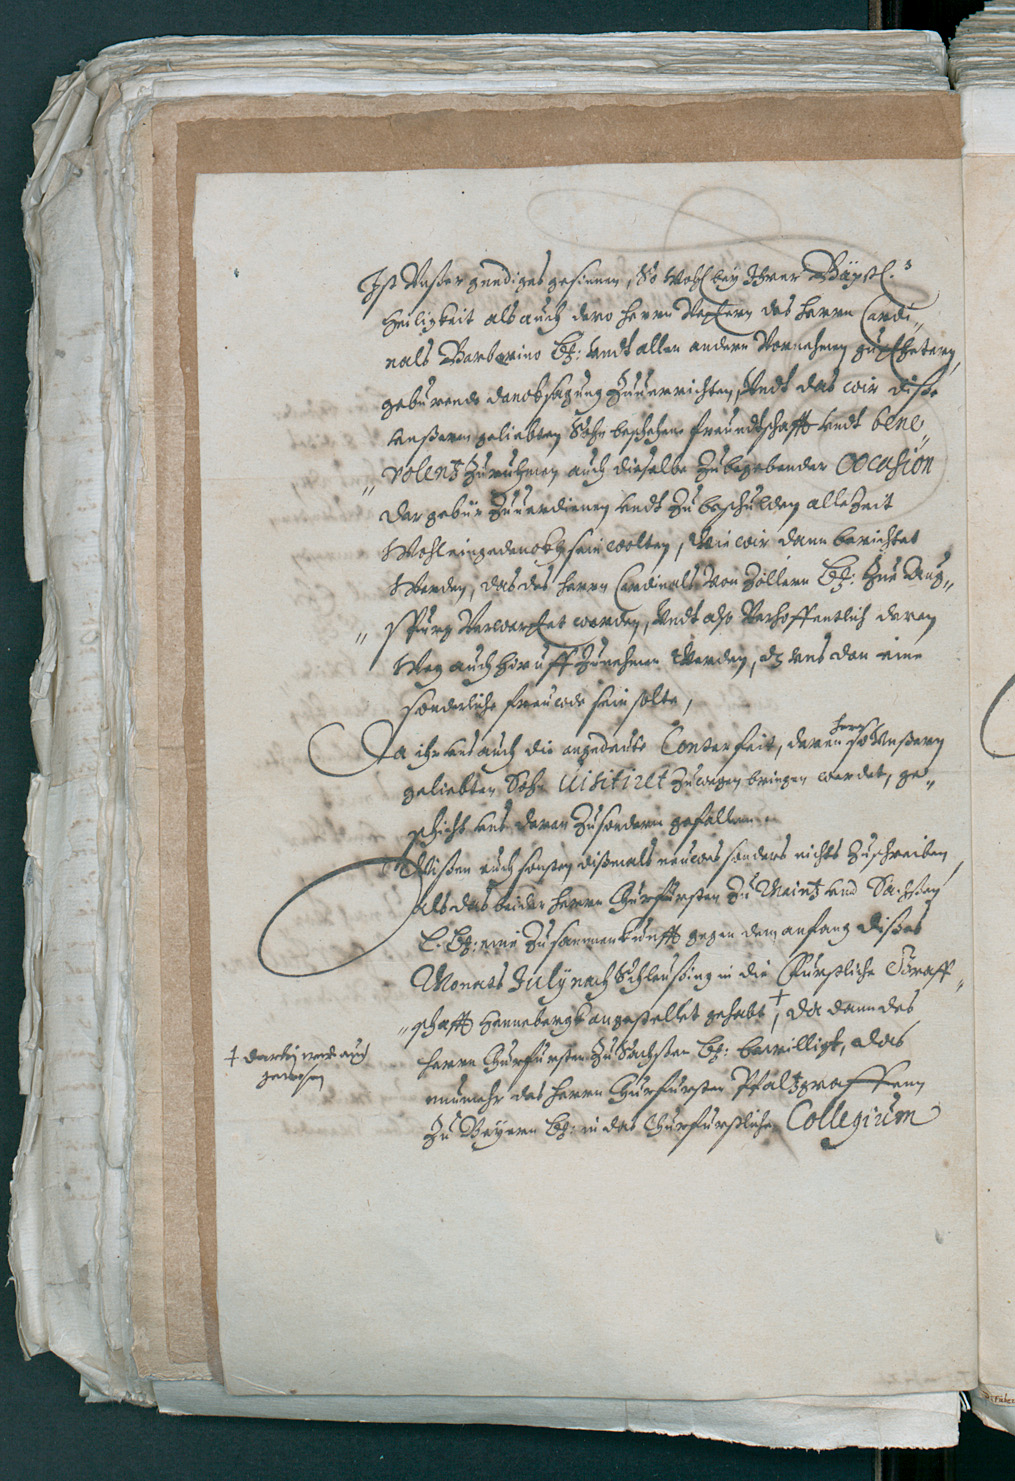 Ist Unser gnediges gesinnen, So wohl bey Ihrer Bäpstl:
Heiligkeit als auch dero herrn Vettern des herrn Cardi„
nals Barberino Ld: undt allen andern Vornehmen guetthetern,
geburende dancksagung Zuuerrichten, Undt das wir diße
unßerm geliebten Sohn beschehene freundtschafft undt bene„
„volentz Zurühmen auch dieselbe Zubegebender occasion
der gebür Zuuerdienen undt Zu beschulden alle Zeit
Wohl eingedenckh sein wolten, Wie wir dann berichtet
Werden, das des herrn Cardinals Von Zollern Ld: Zue Aug„
„spurg Verwarttet werden, Undt also Verhoffentlich deren
Weg auch hirauff Zunehmen Werden, dz uns dan eine
sonderliche freude sein solte,
Da ihr uns auch die angedeute Conterfait, deren herrn so Unßern
geliebten Sohn uisitiret Zuwegen bringen werdet, ge„
„schicht uns daran Zu sondern gefallen.
Wißen euch sonsten dißmals neuwes sonders nichts Zuschreiben,
als das beider herrn Churfürsten Zu Maintz und Sachßen
L. Ld: eine Zusammenkunfft gegen dem anfang dißes
Monats July nach Schleusing in die Fürstliche Graff„
„schafft Hennebergk angestellet gehabt †, da dann des
herrn Churfürsten Zu Sachsen Ld: bewilligt, das
nunmehr des herrn Churfürsten Pfaltzgraffenn
Zu Beyern Ld: in das Churfürstliche Collegium
† darbey wir auch
gewesen